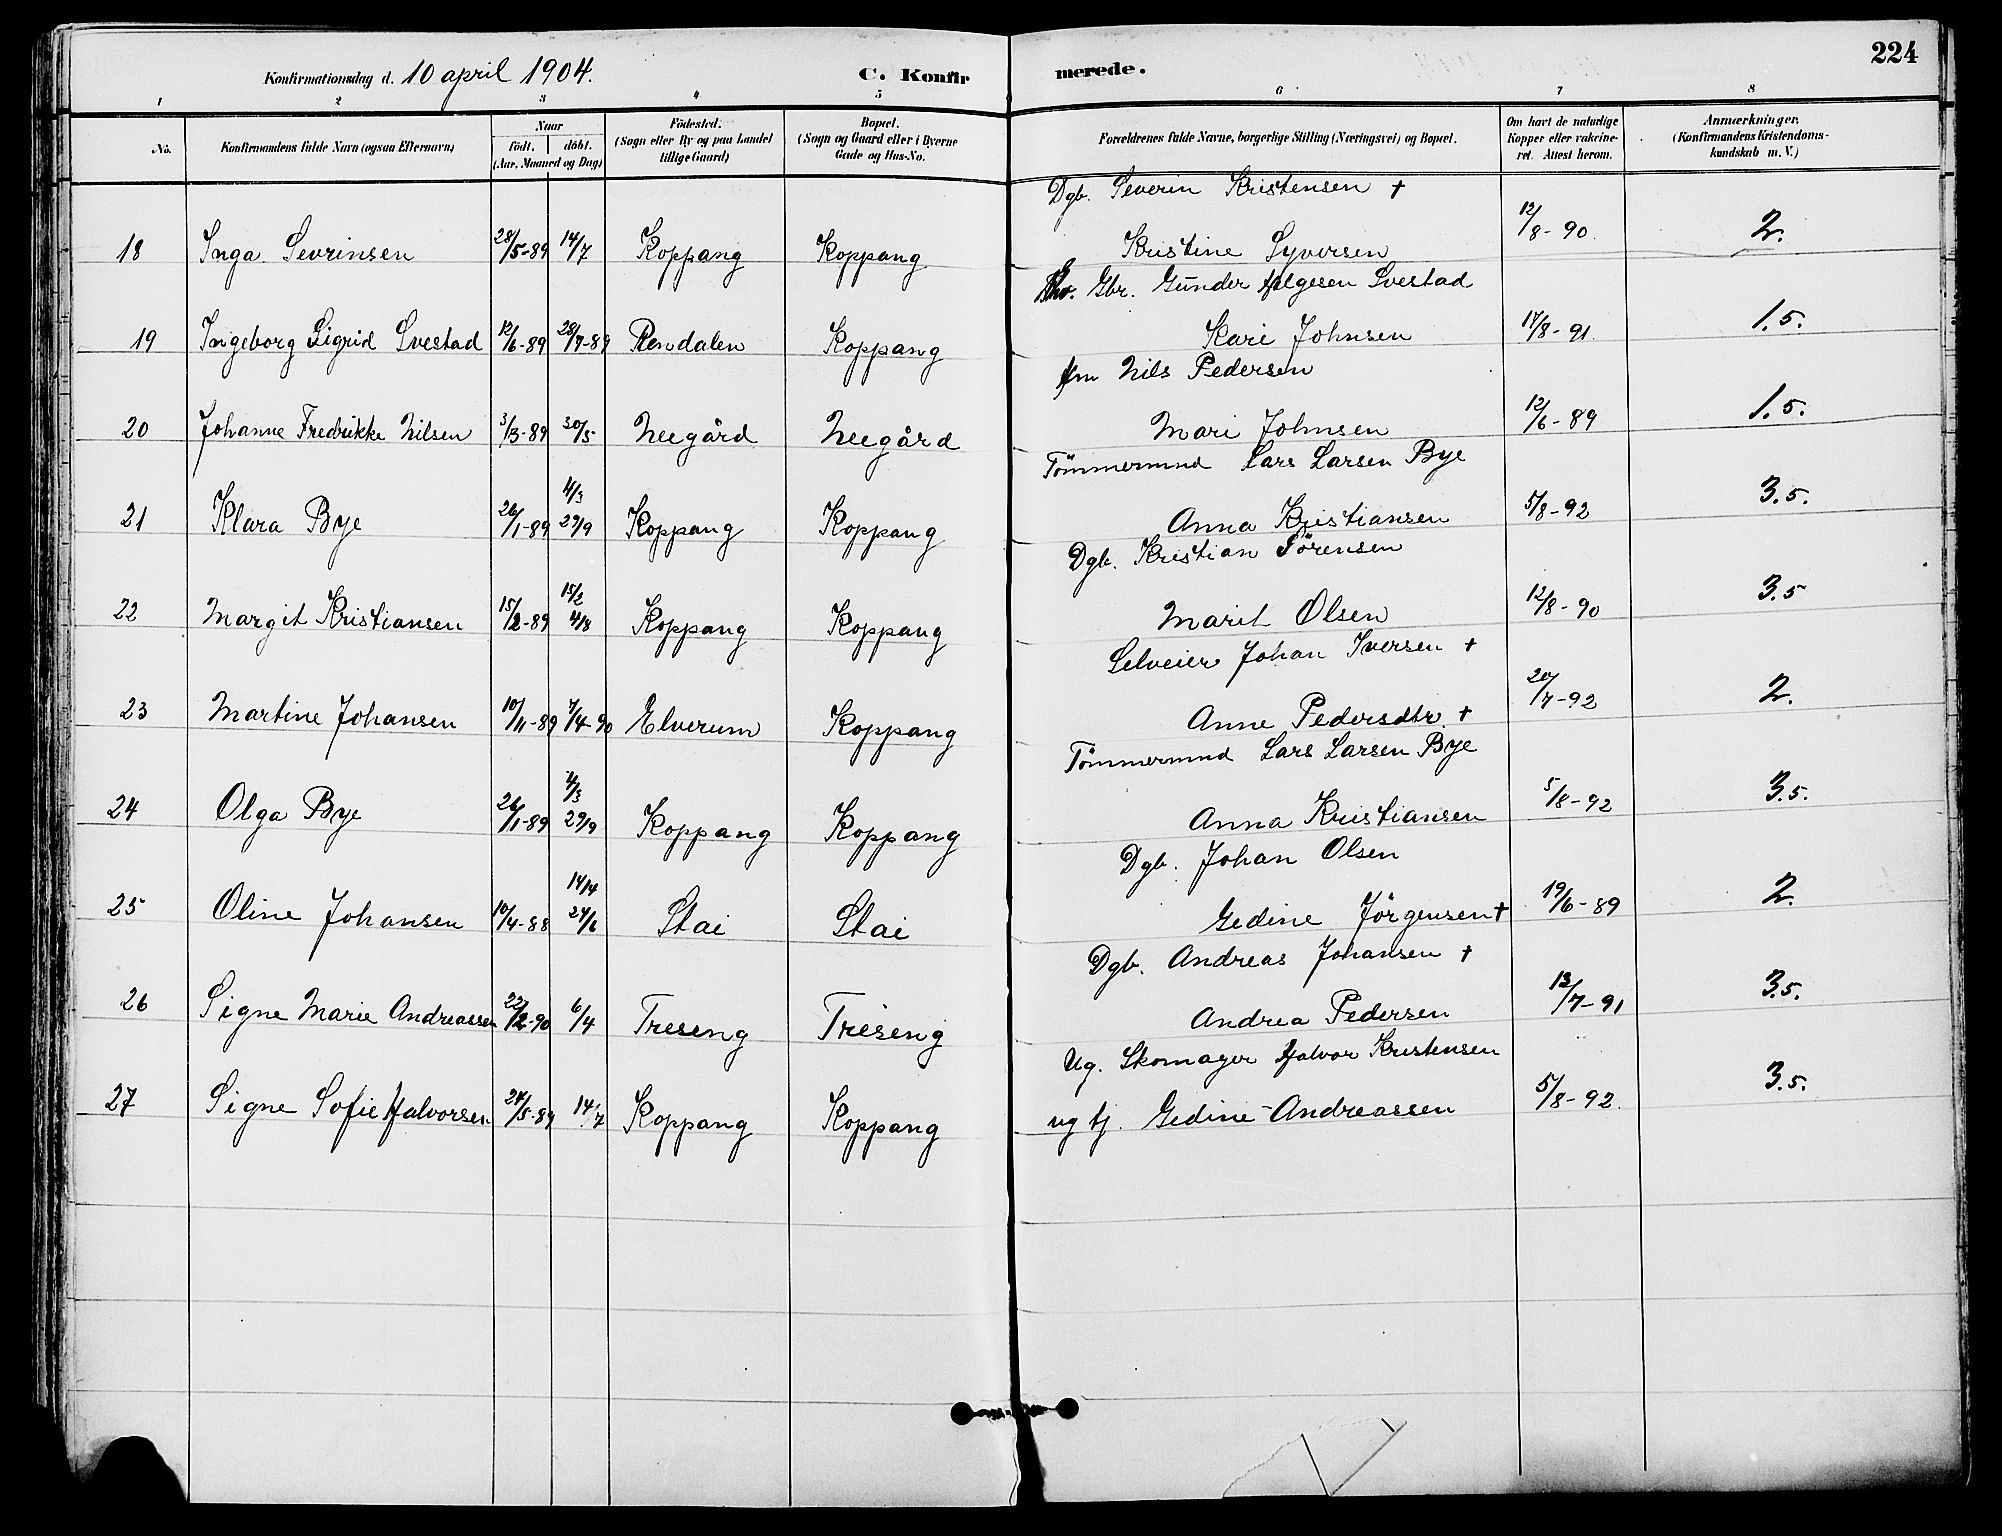 224
Konfirmationsdag d. 10 april 1904.
C. Konfirmerede.
1 2 3 4 5 6 7 8
No.
Konfirmandens fulde Navn (ogsaa Efternavn)
Naar
födt. döbt.
(Aar, Maaned og Dag)
Födested.
(Sogn eller By og paa Landet
tillige Gaard)
Bopæl.
(Sogn og Gaard eller i Byerne
Gade og Hus-No.
Forældrenes fulde Navne, borgerlige Stilling (Næringsvei) og Bopæl.
Om havt de naturlige
Kopper eller vakcine-
ret. Attest herom.
Anmærkninger.
(Konfirmandens Kristendoms-
kundskab m. V.)
Dgb. Severin Kristensen +
18 Inga Sevrinsen 28/5-89 14/7 Koppang Koppang Kristine Syversen 12/8-90. 2.
Gbr. Gunder Helgesen Svestad
19 Ingeborg Sigrid Svestad 12/6-89 28/7-89 Rendalen Koppang Kari Johnsen 17/8-91. 1.5.
Hm Nils Pedersen
20 Johanne Fredrikke Nilsen 3/3-89 30/5 Neegård Neegård Mari Johnsen 12/6-89 1.5.
Tömmermnd Lars Larsen Bye
21 Klara Bye 26/1-89 4/3 29/9 Koppang Koppang Anna Kristiansen 5/8-92 3.5.
Dgb. Kristian Sörensen
22 Margit Kristiansen 15/2-89 15/2 4/8 Koppang Koppang Marit Olsen 12/8-90 3.5
Selveier Johan Iversen +
23 Martine Johansen 10/11-89 7/4-90 Elverum Koppang Anne Pedersdtr. + 20/7-92 2.
Tömmermnd Lars Larsen Bye
24 Olga Bye 26/1-89 4/3 29/9 Koppang Koppang Anna Kristiansen 5/8-92 3.5.
Dgb. Johan Olsen
25 Oline Johansen 10/4-88 14/4 24/6 Stai Stai Gedine Jörgensen + 19/6-89 2.
Dgb. Andreas Johansen +
26 Signe Marie Andreassen 22/2-90 6/4 Treseng Treseng Andrea Pedersen 13/7-91 3.5.
Ug. Skomager Halvor Kristensen
27 Signe Sofie Halvorsen 24/5-89 14/7 Koppang Koppang ug tj. Gedine Andreassen 5/8-92. 3.5.